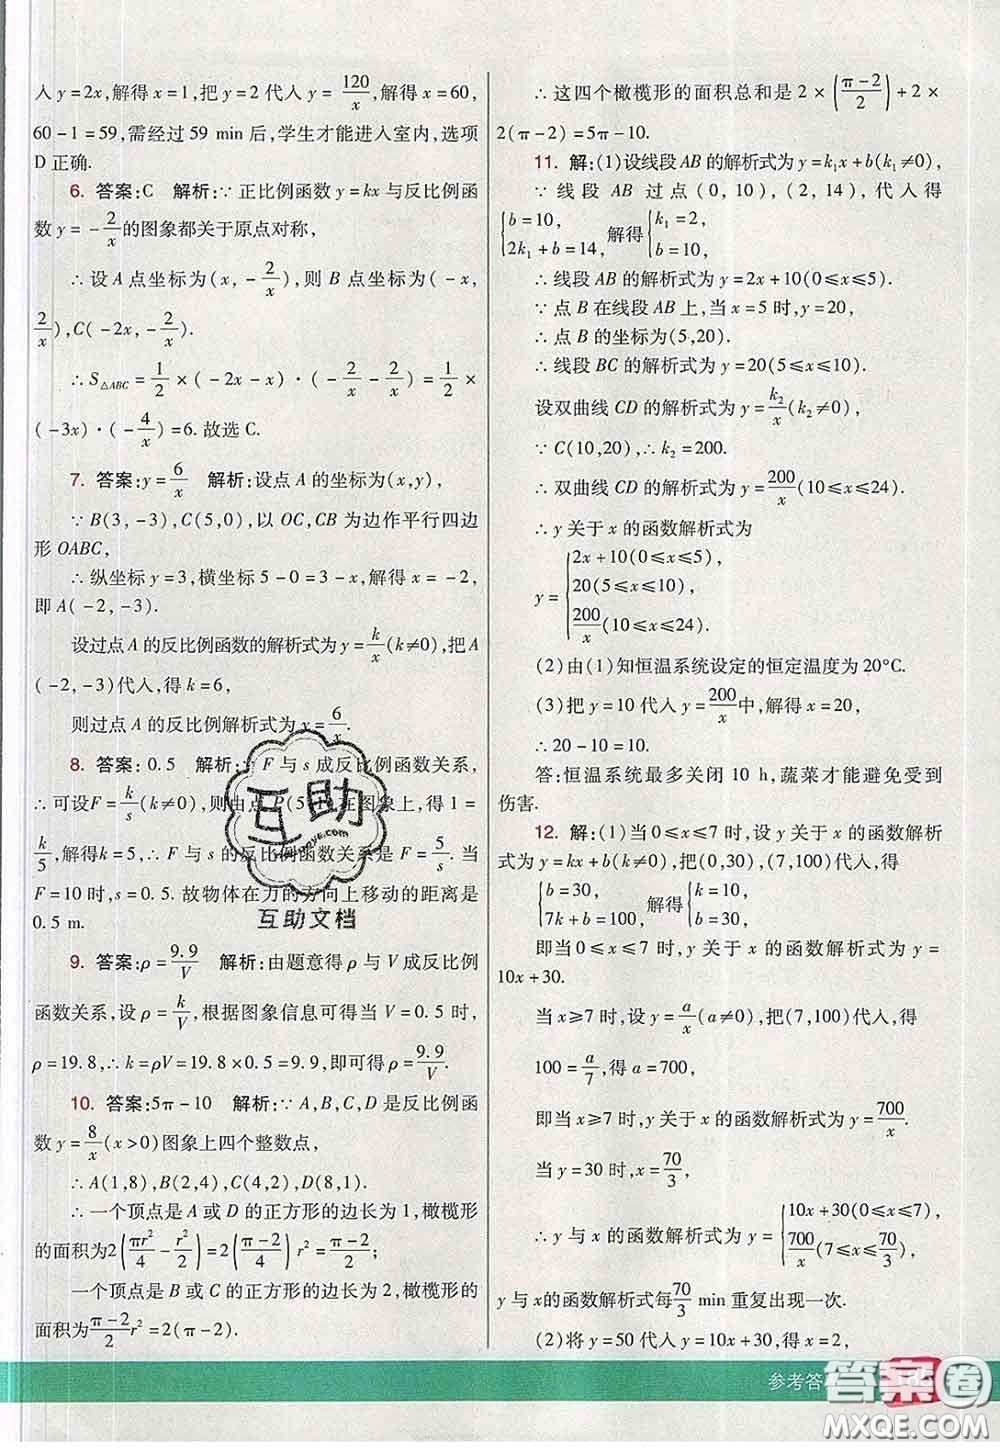 入 y=2x,解得 x=1,把 y=2 代入 y=120/x,解得 x=60,
60-1=59,需经过 59 min 后,学生才能进入室内,选项
D 正确.
6. 答案:C 解析:∵正比例函数 y=kx 与反比例函
数 y=-2/x的图象都关于原点对称,
∴设 A 点坐标为(x,-2/x),则 B 点坐标为(-x,
2/x),C(-2x,-2/x).
∴S△ABC=1/2×(-2x-x)·(-2/x-2/x)=1/2×
(-3x)·(-4/x)=6.故选 C.
7. 答案:y=6/x 解析:设点 A 的坐标为(x,y),
∵B(3,-3),C(5,0),以 OC,CB 为边作平行四边
形 OABC,
∴纵坐标 y=3,横坐标 5-0=3-x,解得 x=-2,
即 A(-2,-3).
设过点 A 的反比例函数的解析式为 y=k/x(k≠0),把 A
(-2,-3)代入,得 k=6,
则过点 A 的反比例解析式为 y=6/x.
8. 答案:0.5 解析:∵F 与 s 成反比例函数关系,
∴可设F=k/s(k≠0),则由点 P(5,1)在图象上,得 1=
k/5,解得k=5,∴F 与 s 的反比例函数关系是 F=5/s.当
F=10 时,s=0.5.故物体在力的方向上移动的距离是
0.5 m.
9. 答案:ρ=9.9/V 解析:由题意得 ρ 与 V 成反比例
函数关系,设 ρ=k/V,根据图象信息可得当 V=0.5 时,
ρ=19.8,∴k=ρV=19.8×0.5=9.9,即可得 ρ=9.9/V.
10. 答案:5π-10 解析:∵A,B,C,D 是反比例函
数 y=8/x(x>0)图象上四个整数点,
∴A(1,8),B(2,4),C(4,2),D(8,1).
∴一个顶点是 A 或 D 的正方形的边长为 1,橄榄形
的面积为2(πr²/4-r²/2)=2((π-2)/4)r²=(π-2)/2;
一个顶点是 B 或 C 的正方形的边长为 2,橄榄形的
面积为(π-2)/2 r²=2(π-2).
∴这四个橄榄形的面积总和是 2×((π-2)/2)+2×
2(π-2)=5π-10.
11. 解:(1)设线段 AB 的解析式为 y=k₁x+b(k₁≠0),
∵线段 AB 过点(0,10),(2,14),代入得
{b=10, 2k₁+b=14, 解得{k₁=2, b=10,
∴线段 AB 的解析式为 y=2x+10(0≤x≤5).
∵点 B 在线段 AB 上,当 x=5 时,y=20,
∴点 B 的坐标为(5,20).
∴线段 BC 的解析式为 y=20(5≤x≤10).
设双曲线 CD 的解析式为 y=k₂/x(k₂≠0),
∵C(10,20),∴k₂=200.
∴双曲线 CD 的解析式为 y=200/x(10≤x≤24).
∴y 关于 x 的函数解析式为
y={2x+10(0≤x≤5),
20(5≤x≤10),
200/x(10≤x≤24).
(2)由(1)知恒温系统设定的恒定温度为 20℃.
(3)把 y=10 代入 y=200/x中,解得 x=20,
∴20-10=10.
答:恒温系统最多关闭 10 h,蔬菜才能避免受到
伤害.
12. 解:(1)当 0≤x≤7 时,设 y 关于 x 的函数解析
式为 y=kx+b(k≠0),把(0,30),(7,100)代入,得
{b=30, 7k+b=100, 解得{k=10, b=30,
即当 0≤x≤7 时,y 关于 x 的函数解析式为 y=
10x+30.
当 x≥7 时,设 y=a/x(a≠0),把(7,100)代入,得
100=a/7,得 a=700,
即当 x≥7 时,y 关于 x 的函数解析式为 y=700/x.
当 y=30 时,x=70/3,
∴y 与 x 的函数解析式为 y={10x+30(0≤x≤7),
700/x(7≤x≤70/3),
y 与x的函数解析式每70/3 min 重复出现一次.
(2)将 y=50 代入 y=10x+30,得 x=2,
互助
互助文档
参考答
答案卷
MXQE.COM